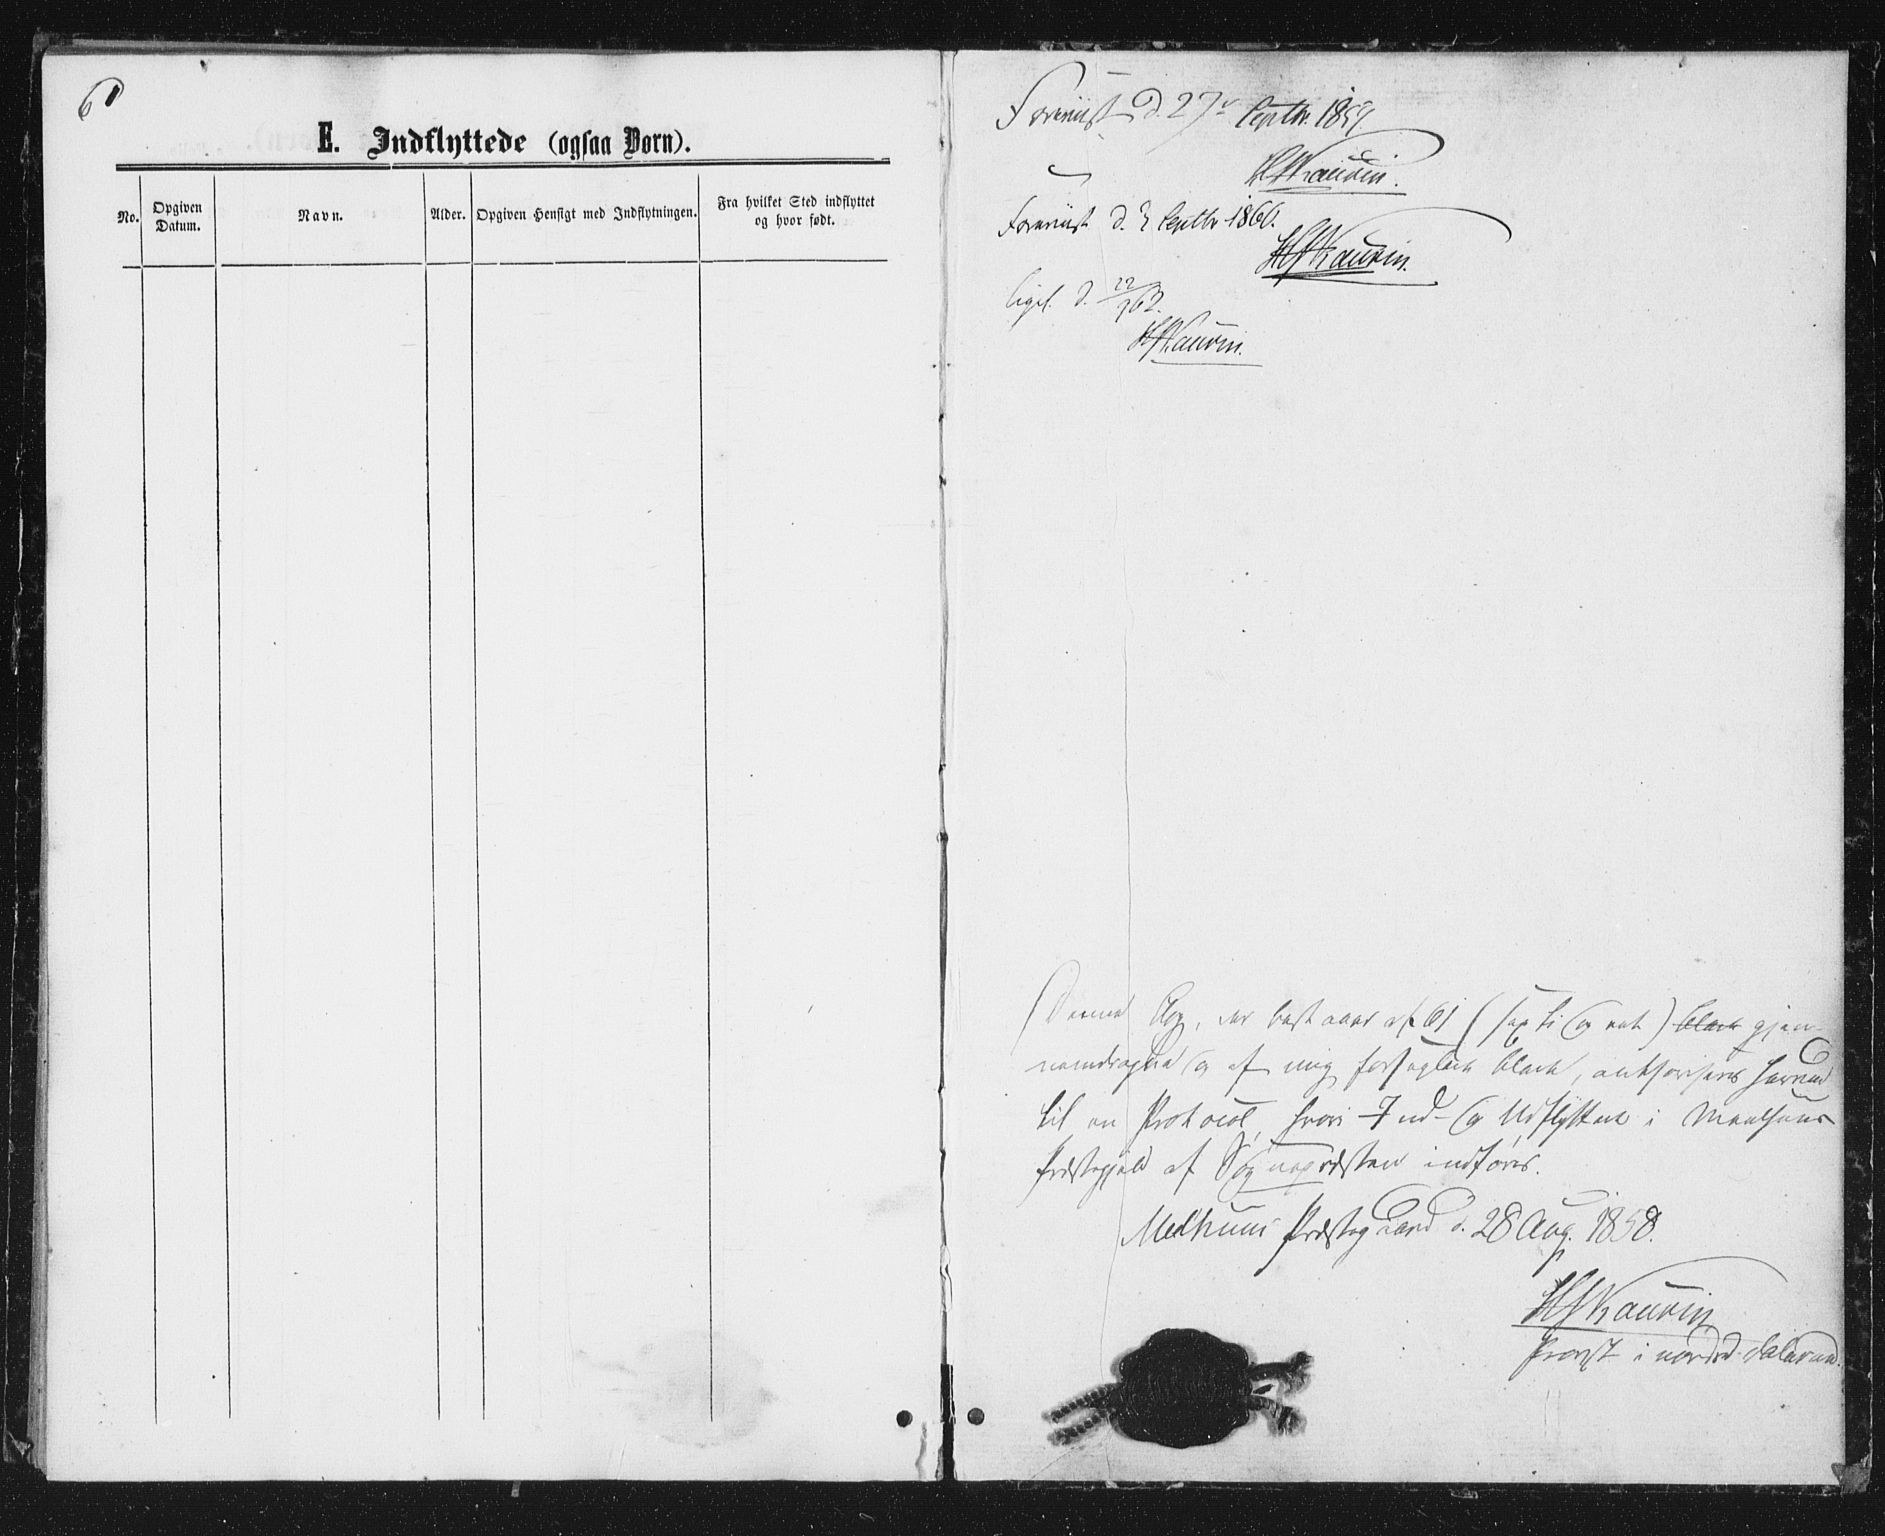 61
E. Indflyttede (ogsaa Børn).
No.
Opgiven Datum.
Navn.
Alder.
Opgiven Hensigt med Indflytningen.
Fra hvilket Sted indflyttet
og hvor født.
Foreviist d. 27de Septbr. 1859.
HPSKaurin.
Foreviist d. Septbr 1860.
Kaurin.
Ligel. d. 22/
Kaurin.
Denne Bog, der bestaaer af 61 (sexti og eet) blade gjen-
nemdragne og af mig forseglede blade, authoriseres herved
til en Protocol, hvori Ind- og Udflyttede i
Præstegjeld af Sognepræsten indføres.
Melhuus Præstegaard d. 28 Aug. 1858.
Kaurin
Provst i nordre Dalerne.